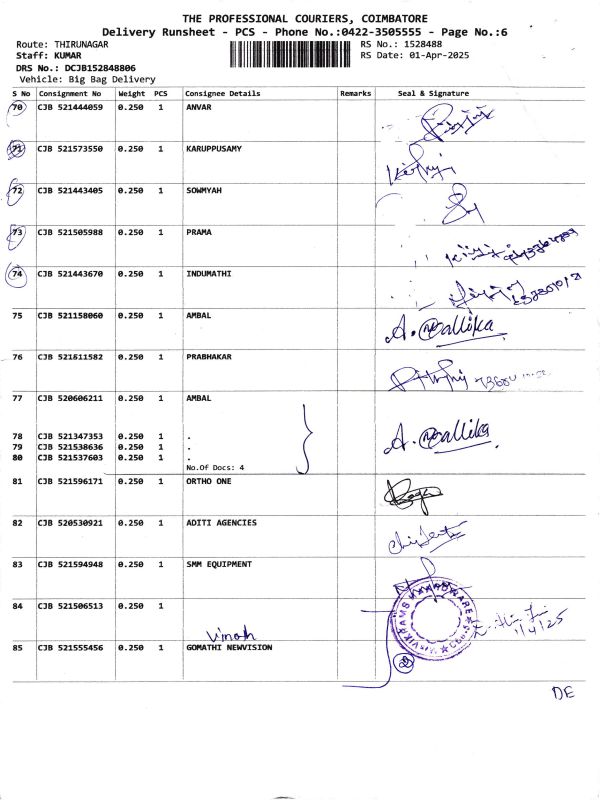 THE PROFESSIONAL COURIERS, COIMBATORE
Delivery Runsheet - PCS - Phone No.:0422-3505555 - Page No.:6
Route: THIRUNAGAR RS No.: 1528488
Staff: KUMAR RS Date: 01-Apr-2025
DRS No.: DCJB152848806
Vehicle: Big Bag Delivery
S No Consignment No Weight PCS Consignee Details Remarks Seal & Signature
70 CJB 521444059 0.250 1 ANVAR
71 CJB 521573550 0.250 1 KARUPPUSAMY
72 CJB 521443405 0.250 1 SOWMYAH
73 CJB 521505988 0.250 1 PRAMA
74 CJB 521443670 0.250 1 INDUMATHI
75 CJB 521158060 0.250 1 AMBAL A. Mallika
76 CJB 521611582 0.250 1 PRABHAKAR
77 CJB 520606211 0.250 1 AMBAL
78 CJB 521347353 0.250 1 . A. Mallika
79 CJB 521538636 0.250 1 .
80 CJB 521537603 0.250 1 .
No.Of Docs: 4
81 CJB 521596171 0.250 1 ORTHO ONE
82 CJB 520530921 0.250 1 ADITI AGENCIES
83 CJB 521594948 0.250 1 SMM EQUIPMENT
84 CJB 521506513 0.250 1
1/4/25
Vinoth
85 CJB 521555456 0.250 1 GOMATHI NEWVISION
DE